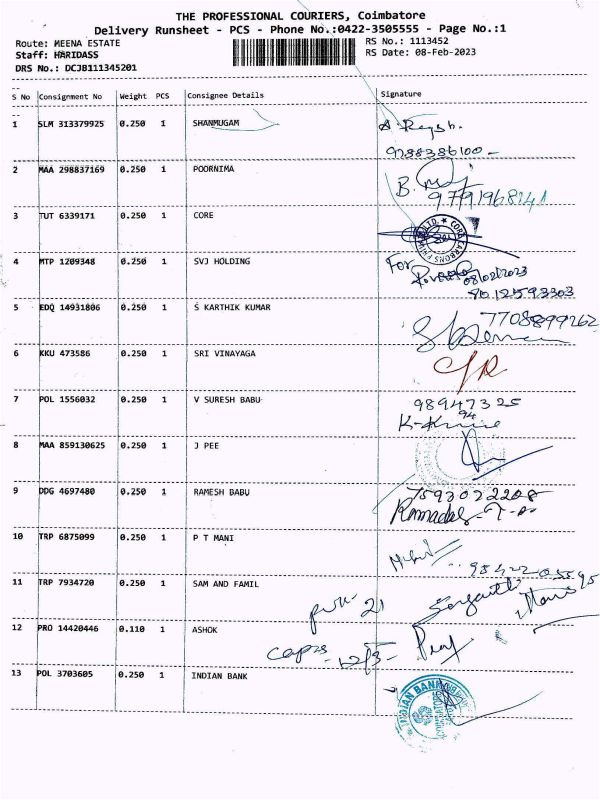 THE PROFESSIONAL COURIERS, Coimbatore
Delivery Runsheet - PCS - Phone No.:0422-3505555 - Page No.:1
Route: MEENA ESTATE RS No.: 1113452
Staff: HARIDASS RS Date: 08-Feb-2023
DRS No.: DCJB111345201
S No Consignment No Weight PCS Consignee Details Signature
1 SLM 313379925 0.250 1 SHANMUGAM
9288386100
2 MAA 298837169 0.250 1 POORNIMA
9791968141
3 TUT 6339171 0.250 1 CORE
4 MTP 1209348 0.250 1 SVJ HOLDING For
08/02/2023
9012593303
5 EDQ 14931806 0.250 1 S KARTHIK KUMAR 7708899262
6 KKU 473586 0.250 1 SRI VINAYAGA
7 POL 1556032 0.250 1 V SURESH BABU 98947325
94
8 MAA 859130625 0.250 1 J PEE
9 DDG 4697480 0.250 1 RAMESH BABU 7593022208
10 TRP 6875099 0.250 1 P T MANI
11 TRP 7934720 0.250 1 SAM AND FAMIL
21
12 PRO 14420446 0.110 1 ASHOK
13 POL 3703605 0.250 1 INDIAN BANK
INDIAN BANK